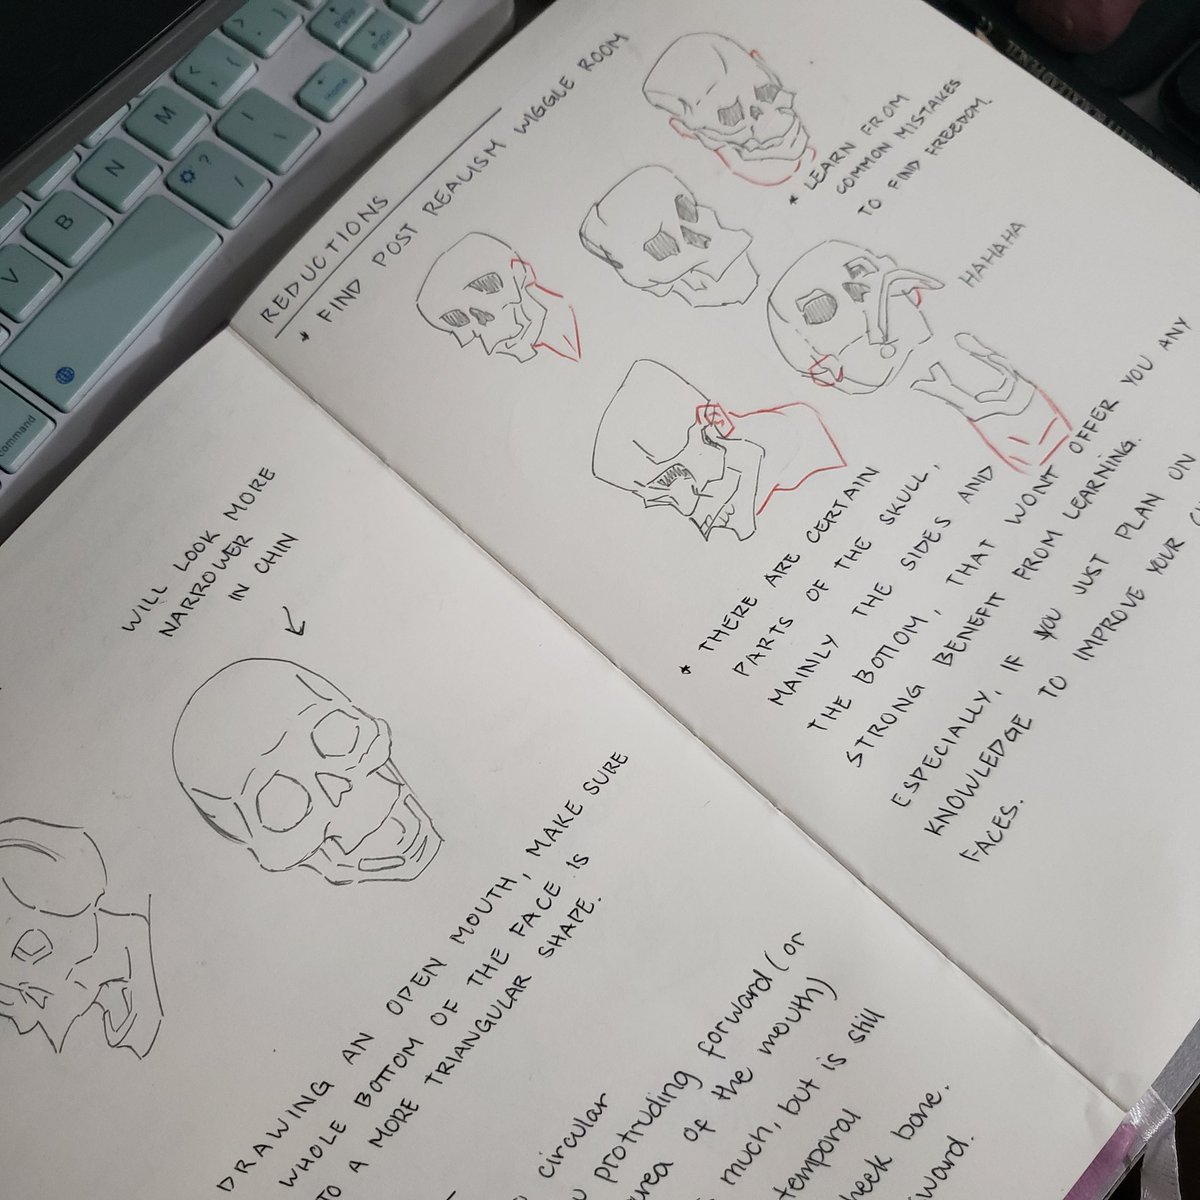 REDUCTIONS
* FIND POST REALISM WIGGLE ROOM
* LEARN FROM
COMMON MISTAKES
TO FIND FREEDOM.
HAHAHA
* THERE ARE CERTAIN
PARTS OF THE SKULL,
MAINLY THE SIDES AND
THE BOTTOM, THAT WONT OFFER YOU ANY
STRONG BENEFIT FROM LEARNING.
ESPECIALLY, IF YOU JUST PLAN ON
KNOWLEDGE TO IMPROVE YOUR
FACES.
WILL LOOK MORE
NARROWER
IN CHIN
DRAWING AN OPEN MOUTH, MAKE SURE
WHOLE BOTTOM OF THE FACE IS
TO A MORE TRIANGULAR SHAPE.
circular
protruding forward (or
area of the mouth)
much, but is still
temporal
cheek bone.
< ,
> .
M
N
B
V
? /
PgUp
PgDn
Home
command